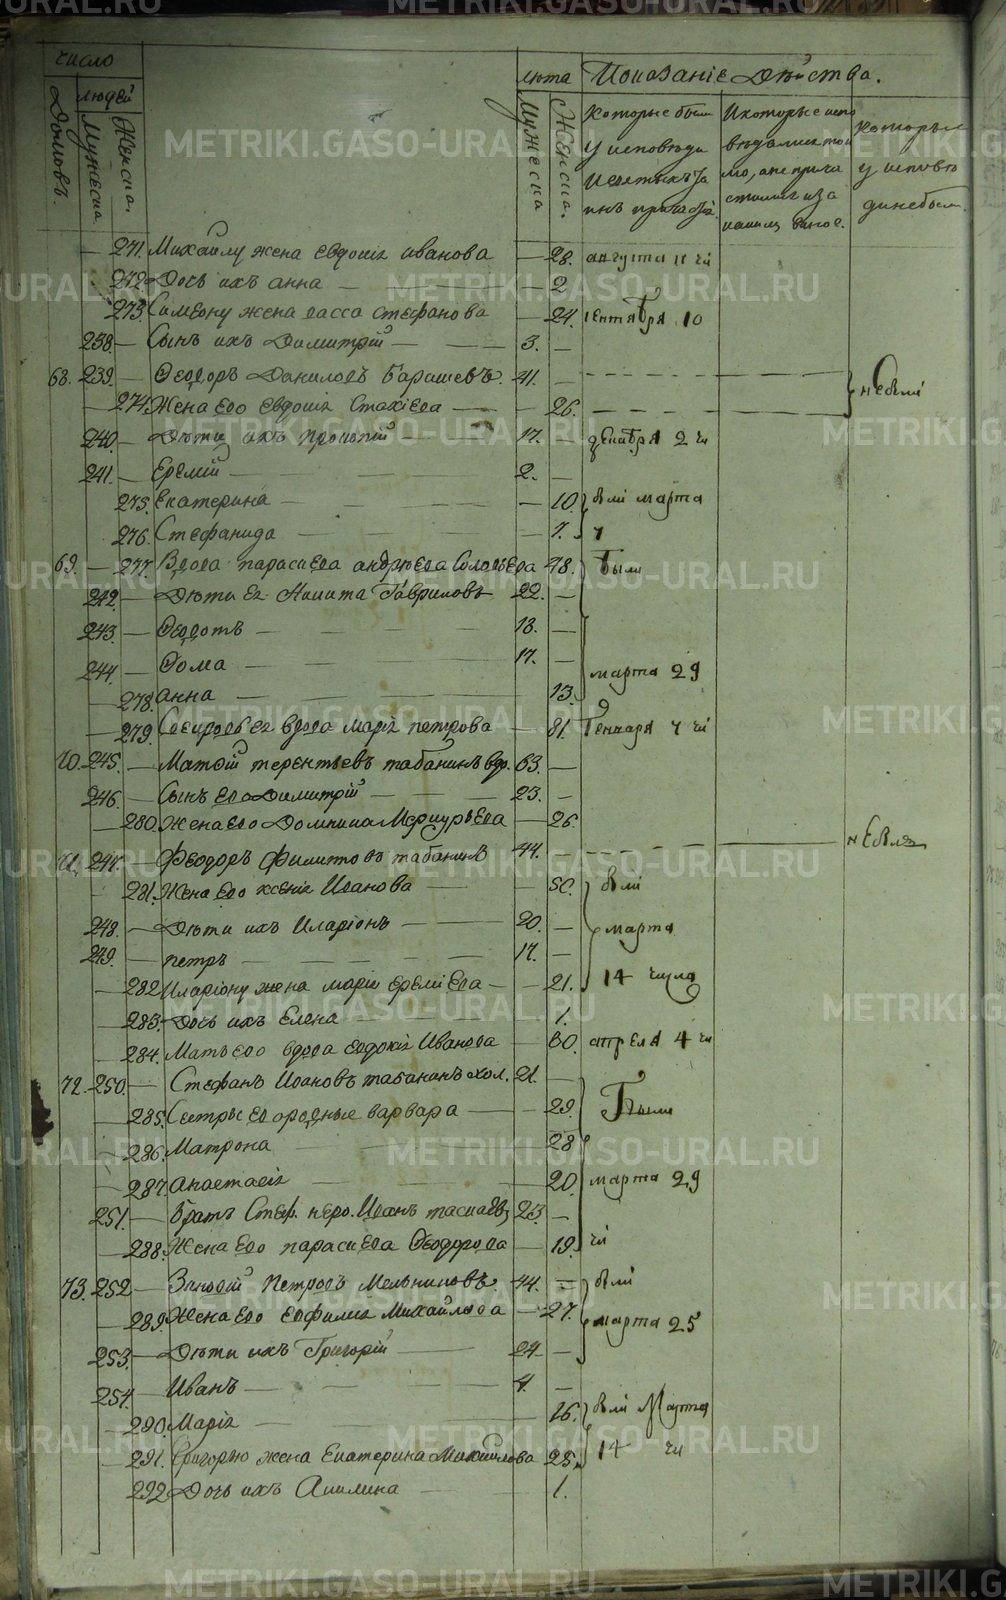 число
людей
Домовъ.
Мужеска
Женска.
люта
Мужеска
Женска.
Показаніе дѣйства.
которые были
у исповѣди
и святыхъ та
инъ причастія.
и которые испо
ведалися то
мо, а не прича
и которые
у исповѣ
ди не были.
271. Михаилу жена Евдокія Иванова — 28. августа 11 чи
272. Дочь ихъ Анна — 2
273. Симеону жена Васса Стефанова — 24. сентября 10
238. — Сынъ ихъ Димитрій — 3. —
68. 239. — Ѳеодоръ Даниловъ Барашевъ. 41. — не были
274. Жена его Евдокія Стахіева — 26.
240. — Дѣти ихъ Прокопій — 17. — декабря 2 чи
241. — Еремій — 2. —
275. Екатерина — 10. были марта
276. Стефанида — 7. 7
69. — 277. Вдова Параскева Андреева Соловьева 48. были
242. — Дѣти ея Никита Гавриловъ 22. —
243. — Ѳедотъ — 18. —
244. — Ѳома — 17. — марта 29
278. Анна — 13.
279. Свекровь ея вдова Марія Петрова — 81. Генваря 7 чи
70. 245. — Матѳій Терентьевъ Табакинъ вдо. 63. —
246. — Сынъ его Димитрій — 23. —
280. Жена его Домникія Меркурьева — 26.
71. 247. — Феодоръ Филиповъ Табакинъ 44. — не былъ
281. Жена его Ксенія Иванова — 50. были
248. — Дѣти ихъ Иларіонъ — 20. — марта
249. — Петръ — 17. —
282. Иларіону жена Марія Еремѣева — 21. 14 числа
283. Дочь ихъ Елена — 1.
284. Мать его вдова Евдокія Иванова — 80. апреля 4 чи
72. 250. — Стефанъ Ивановъ Табакинъ хол. 21. —
285. Сестры его родные Варвара — 29. были
286. Матрона 28
287. Анастасія — 20. марта 29
251. — Братъ Стеф. 23. — чи
288. Жена его Параскева Ѳеодорова — 19.
73. 252. — Зиновій Петровъ Мельниковъ. 44. — были
289. Жена его Евфимія Михайлова — 27. марта 25
253. — Дѣти ихъ Григорій — 24 —
254. — Иванъ — 4. —
290. Марія — 16. были Марта
291. Григорью жена Екатерина Михайлова 25. 14 чи
292. Дочь ихъ Акилина — 1.
METRIKI.GASO-URAL.RU